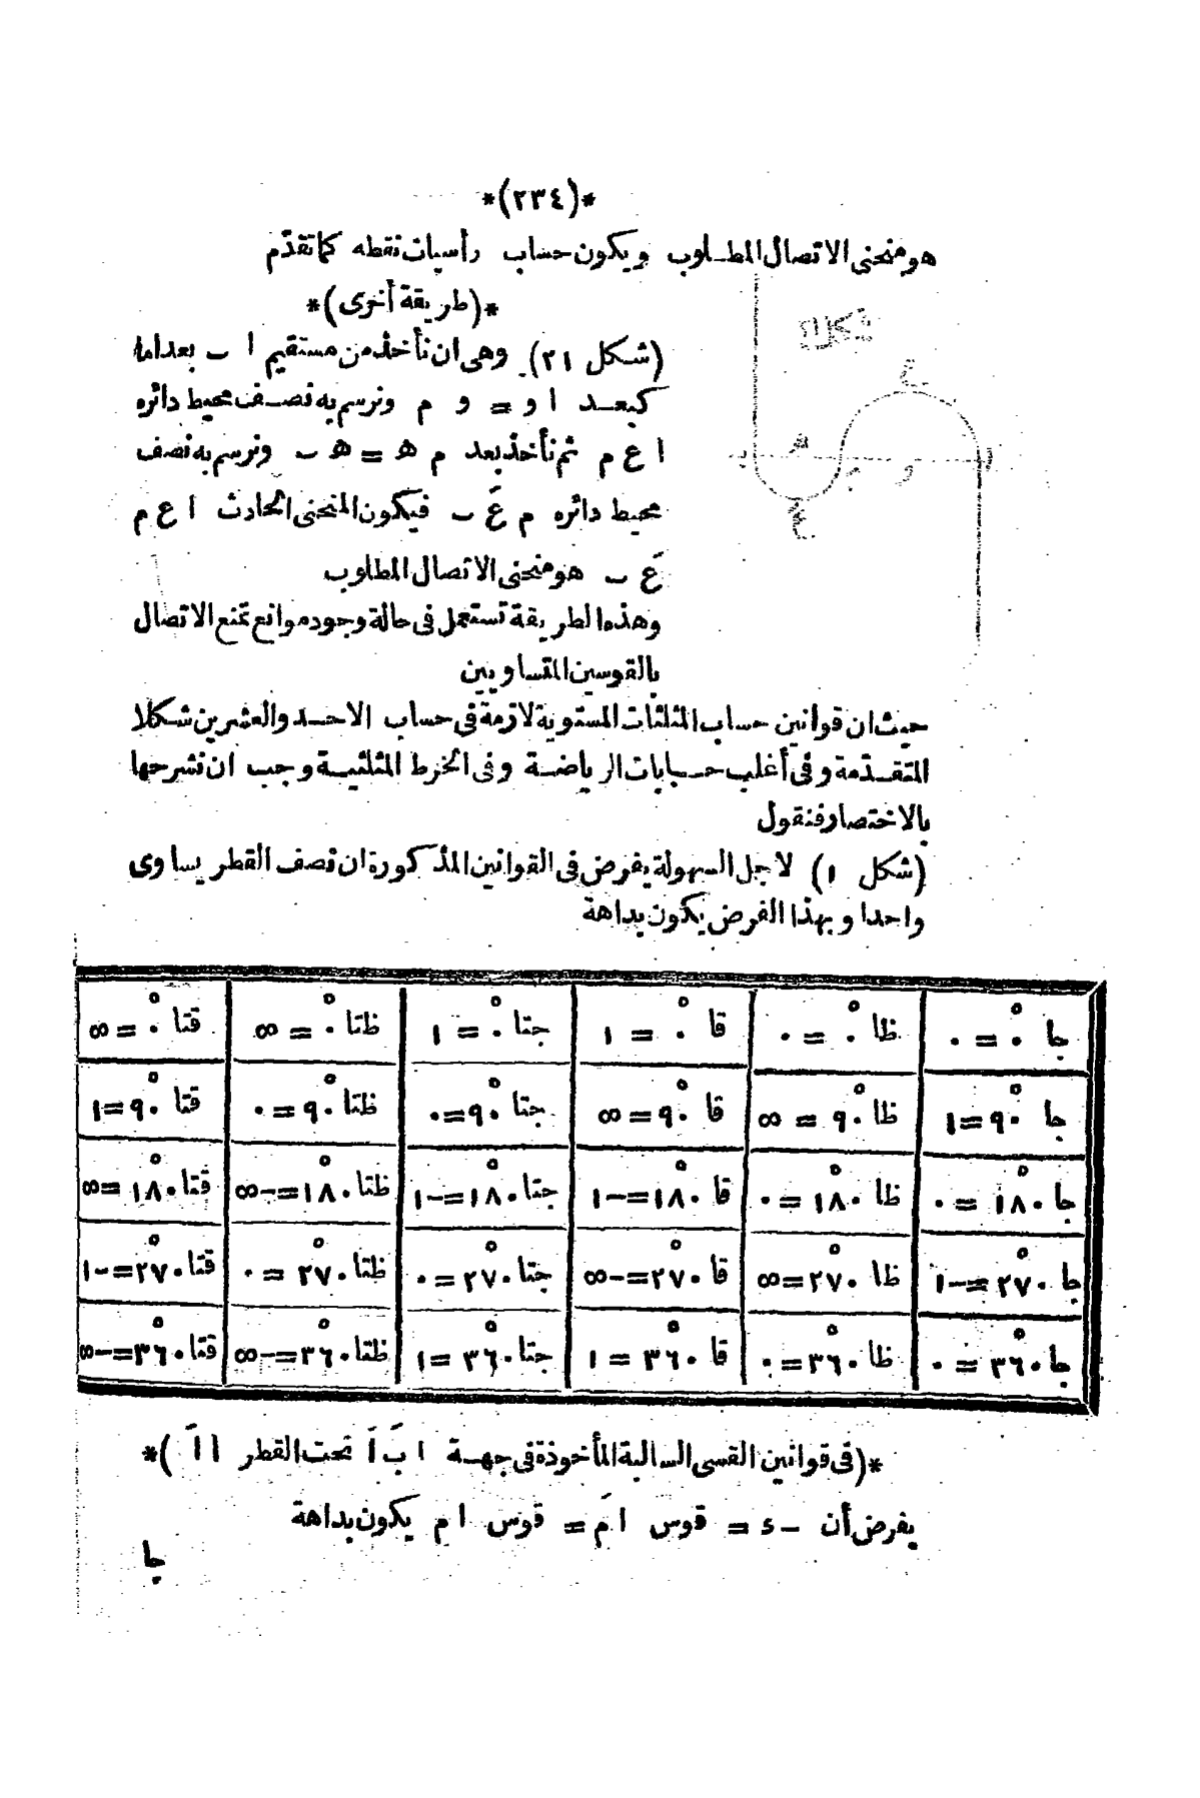 *(٢٣٤)*
هو منحنى الاتصال المطلوب ويكون حساب رأسيات نقطه كما تقدّم
*(طريقة أخرى)*
(شكل ٢١) وهى ان نأخذ من مستقيم ا ب بعدا ما
كبعد ا و = و م ونرسم به نصف محيط دائره
ا ع م ثم نأخذ بعد م ه = ه ب ونرسم به نصف
محيط دائره م عَ ب فيكون المنحنى الحادث ا ع م
عَ ب هو منحنى الاتصال المطلوب
وهذه الطريقة تستعمل فى حالة وجود موانع تمنع الاتصال
بالقوسين المتساويين
حيث ان قوانين حساب المثلثات المستوية لازمة فى حساب الاحد والعشرين شكلا
المتقدّمة وفى أغلب حسابات الرياضة وفى الخرط المثلثية وجب ان نشرحها
بالاختصار فنقول
(شكل ١) لاجل السهولة يفرض فى القوانين المذكورة ان نصف القطر يساوى
واحدا وبهذا الفرض يكون بداهة
جا ٠° = ٠ ظا ٠° = ٠ قا ٠° = ١ جتا ٠° = ١ ظتا ٠° = ∞ قتا ٠° = ∞
جا ٩٠° = ١ ظا ٩٠° = ∞ قا ٩٠° = ∞ جتا ٩٠° = ٠ ظتا ٩٠° = ٠ قتا ٩٠° = ١
جا ١٨٠° = ٠ ظا ١٨٠° = ٠ قا ١٨٠° = -١ جتا ١٨٠° = -١ ظتا ١٨٠° = -∞ قتا ١٨٠° = ∞
جا ٢٧٠° = -١ ظا ٢٧٠° = ∞ قا ٢٧٠° = -∞ جتا ٢٧٠° = ٠ ظتا ٢٧٠° = ٠ قتا ٢٧٠° = -١
جا ٣٦٠° = ٠ ظا ٣٦٠° = ٠ قا ٣٦٠° = ١ جتا ٣٦٠° = ١ ظتا ٣٦٠° = -∞ قتا ٣٦٠° = -∞
*(فى قوانين القسى السالبة المأخوذة فى جهة ا بَ اَ تحت القطر ا اَ)*
يفرض أن -ء = قوس ا مَ = قوس ا م يكون بداهة
جا